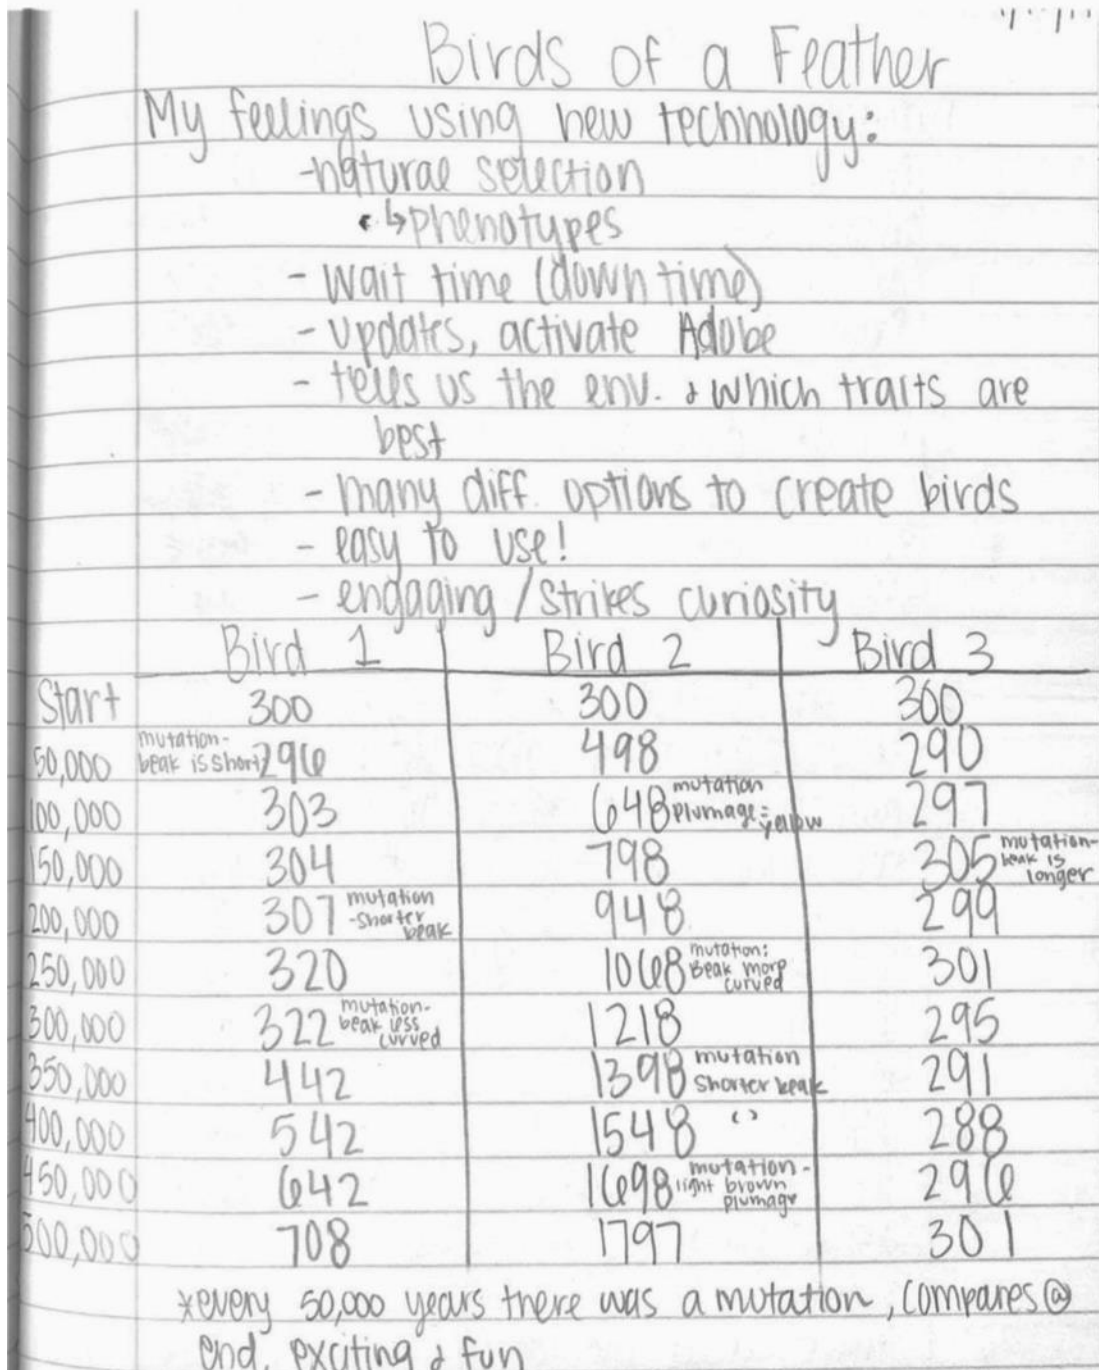 Birds of a Feather
My feelings using new technology:
-natural selection
↳phenotypes
- wait time (down time)
- updates, activate Adobe
- tells us the env. & which traits are
best
- many diff. options to create birds
- easy to use!
- engaging / strikes curiosity
Bird 1 Bird 2 Bird 3
Start 300 300 300
50,000 mutation- beak is short 296 498 290
100,000 303 648 mutation plumage = yellow 297
150,000 304 798 305 mutation- beak is longer
200,000 307 mutation -shorter beak 948 299
250,000 320 1068 mutation: Beak more curved 301
300,000 322 mutation- beak less curved 1218 295
350,000 442 1398 mutation shorter beak 291
400,000 542 1548 " 288
450,000 642 1698 mutation - light brown plumage 296
500,000 708 1797 301
*every 50,000 years there was a mutation, compares @
end, exciting & fun